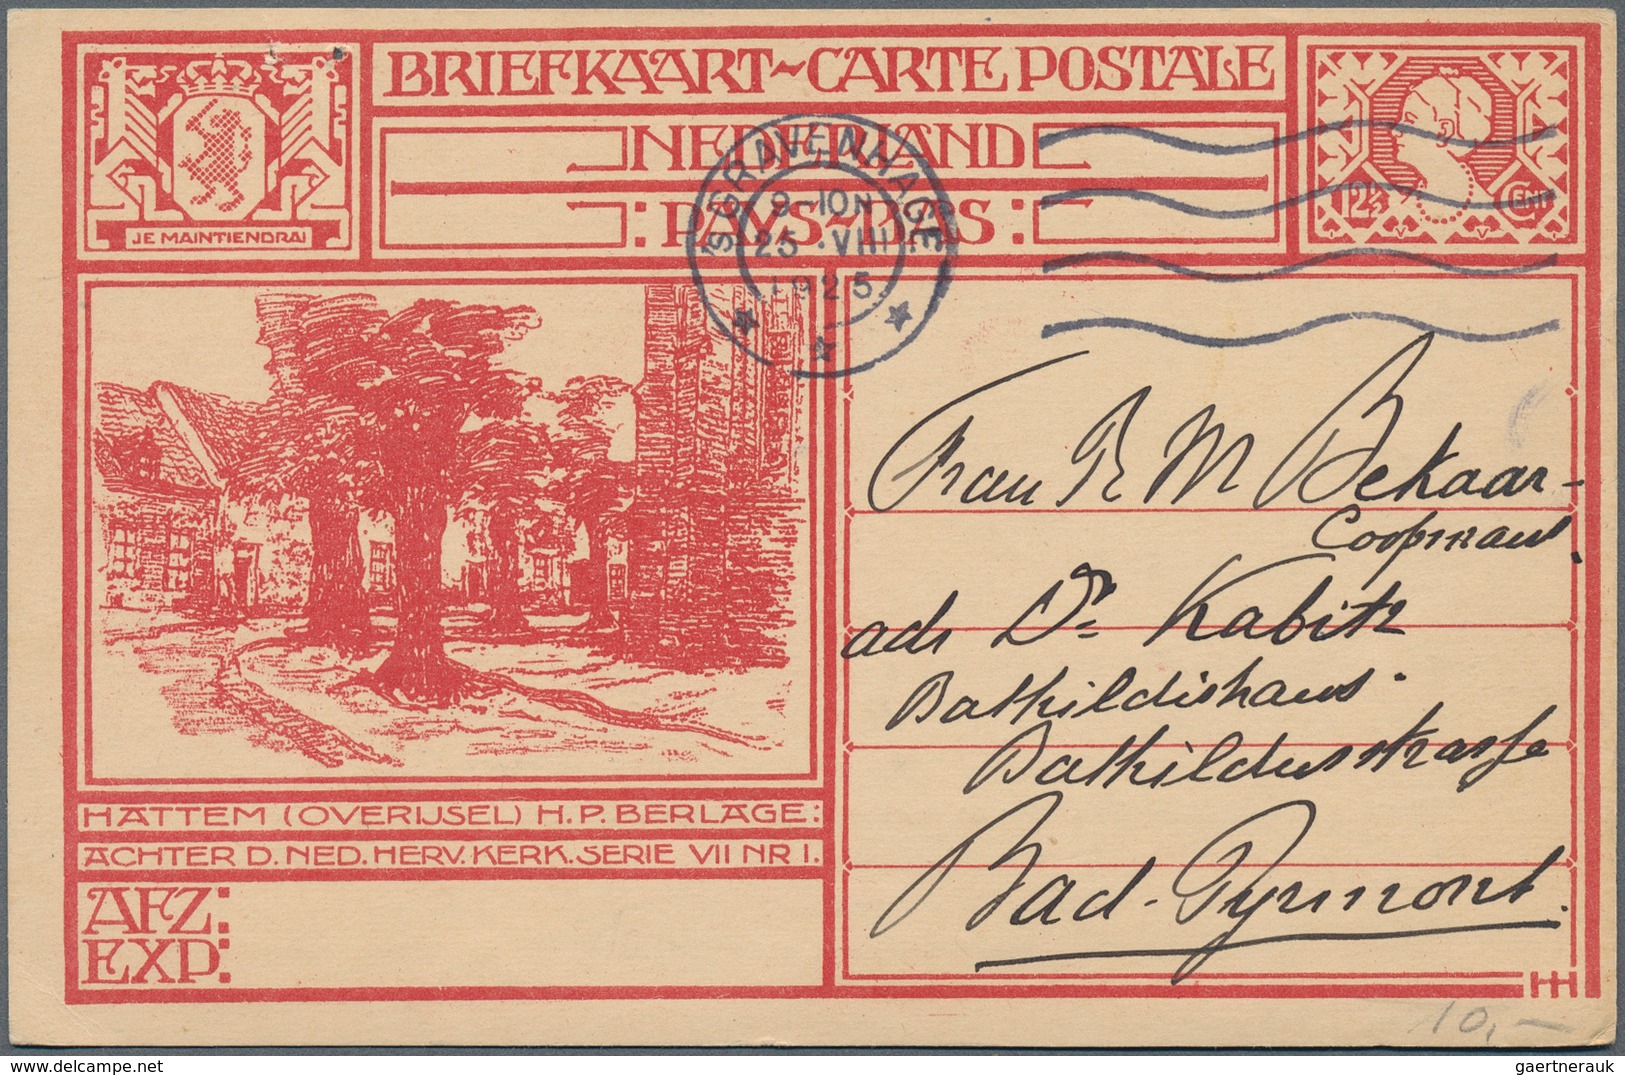 BRIEFKAART~CARTE POSTALE
NEDERLAND
PAYS-BAS:
JE MAINTIENDRAI
12½ CENT
'S GRAVENHAGE
9-10N
25.VIII
1925
Frau R M Bekaar-
Coopmans.
adr Dr Kabitz
Bathildishaus.
Bathildusstrasse
Bad-Pyrmont.
HATTEM (OVERIJSEL) H.P. BERLAGE:
ACHTER D. NED. HERV. KERK. SERIE VII NR I.
AFZ:
EXP:
HH
10,-
gaertnerauk